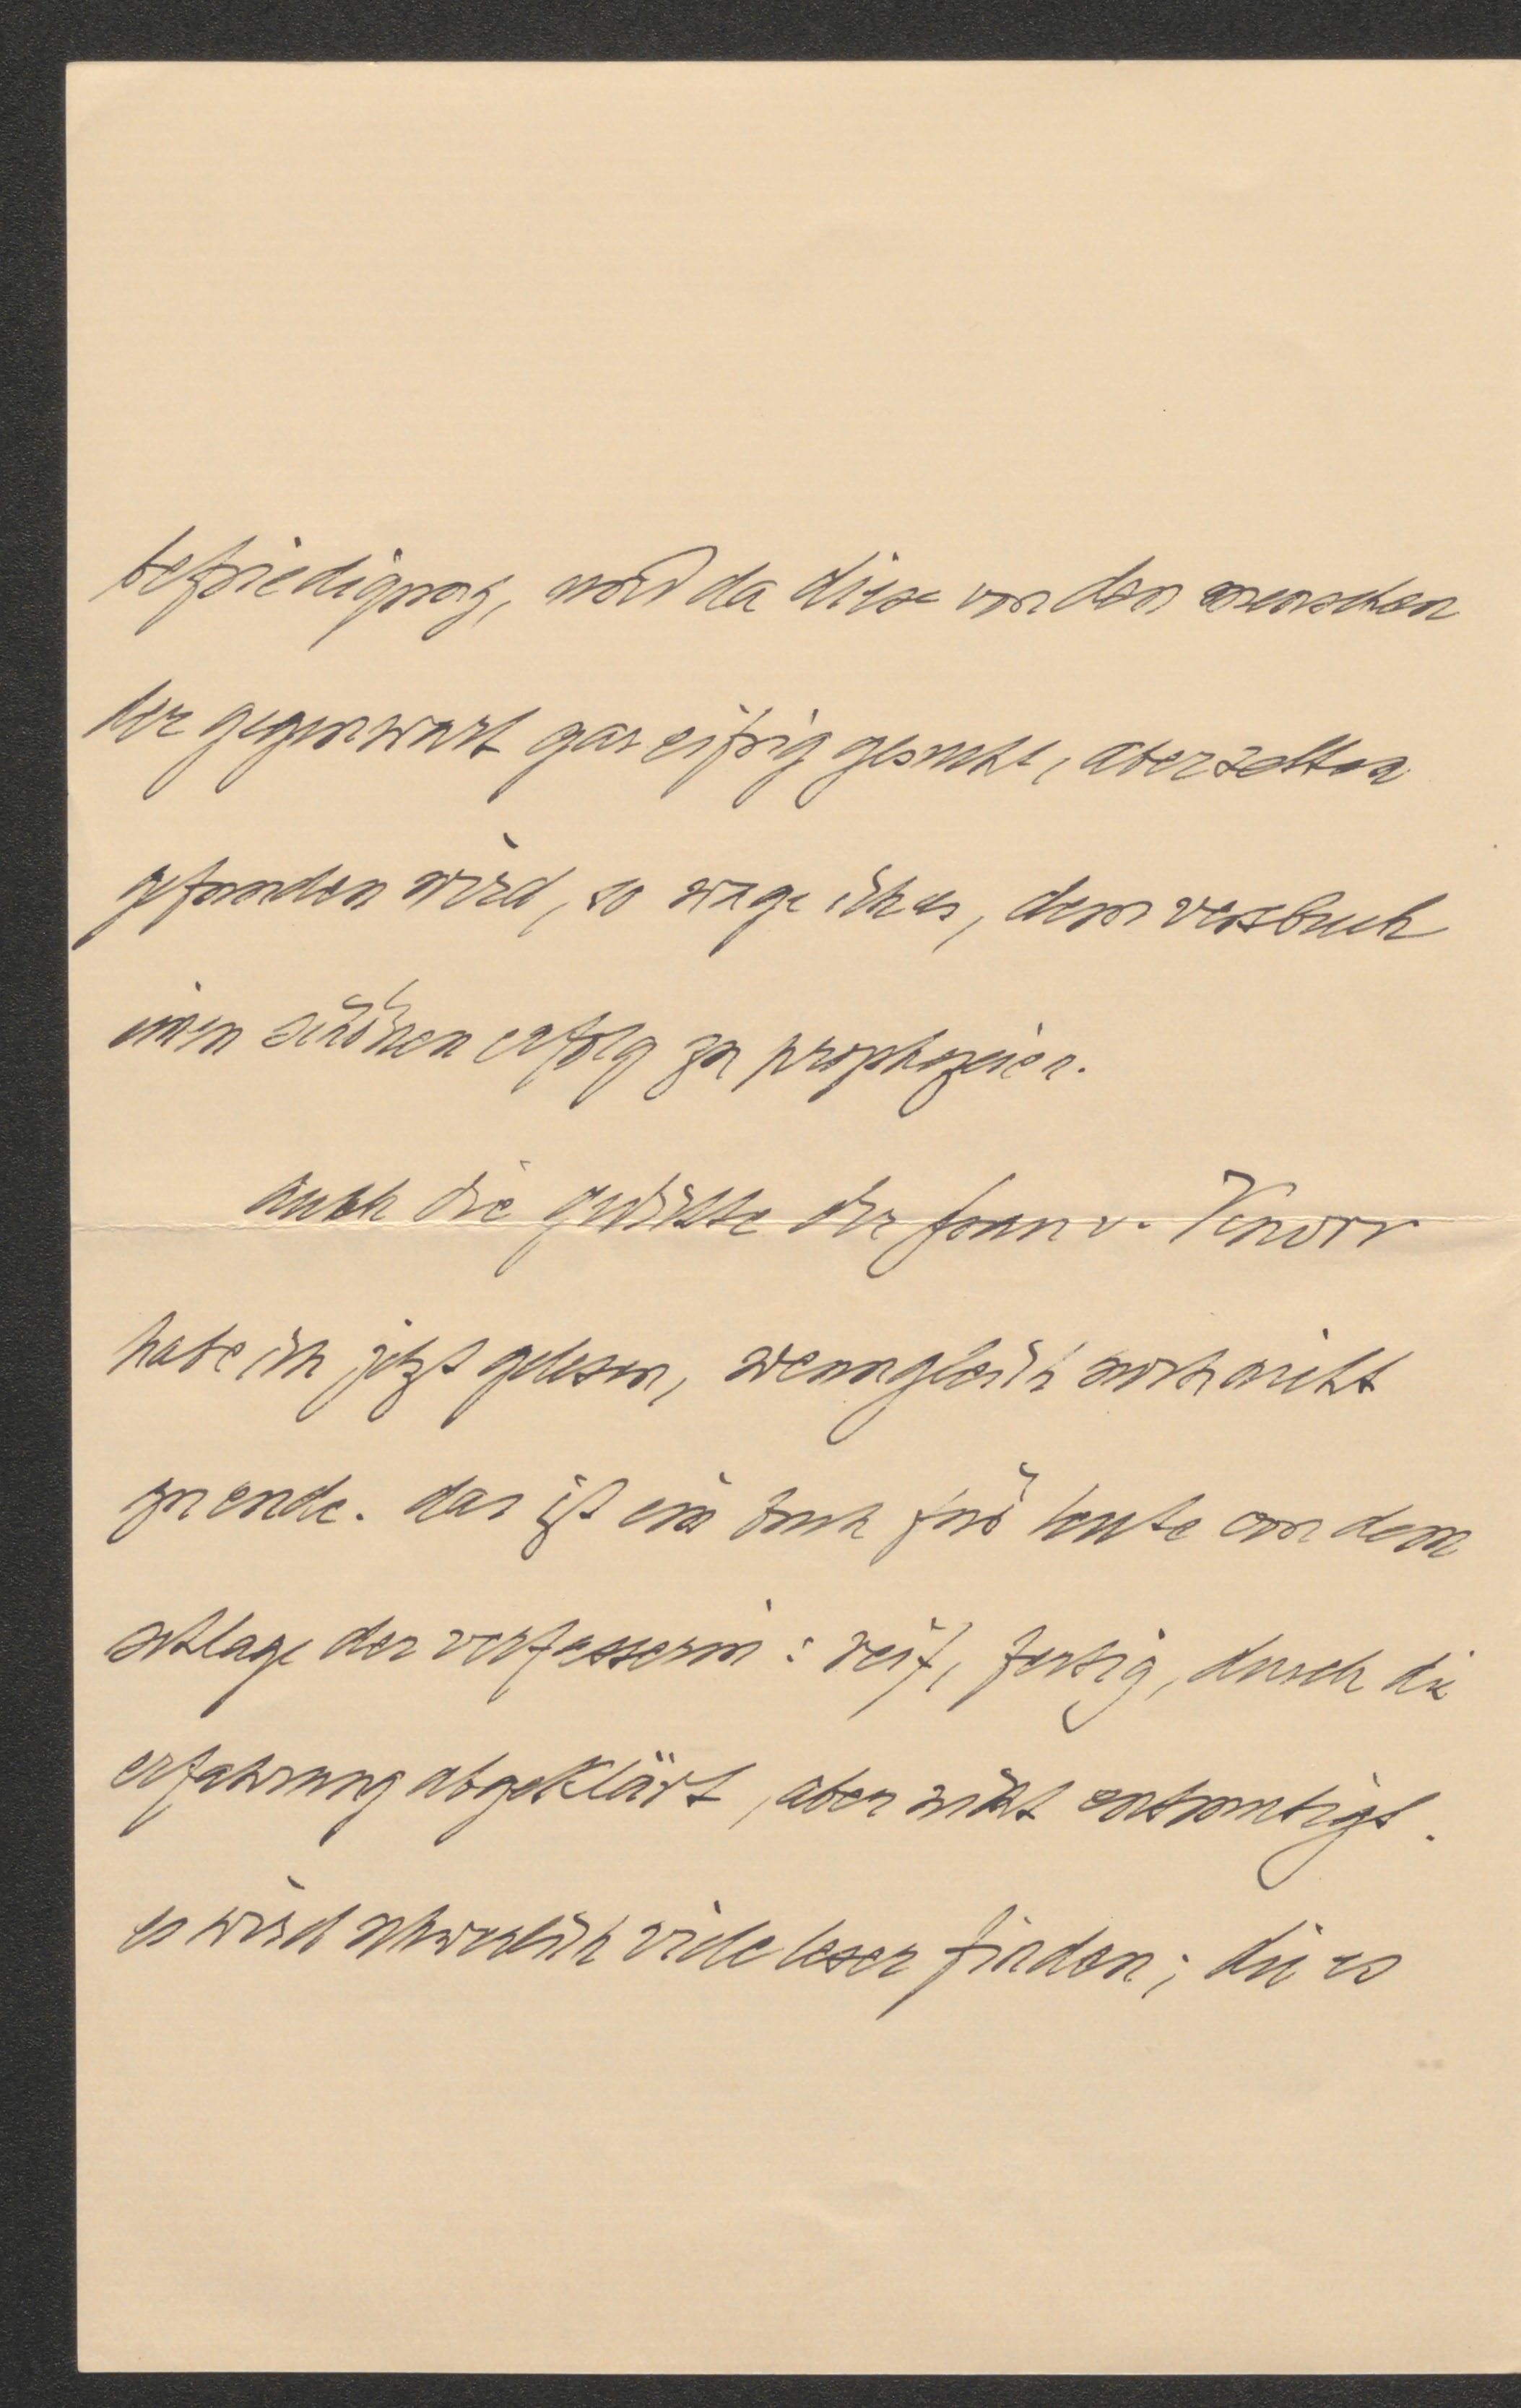 befriedigung, und da diese von den menschen
der gegenwart gar eifrig gesucht, aber selten
gefunden wird, so wage ich es, dem versbuch
einen schönen erfolg zu prophezeien.
auch die gedichte der frau v. Knorr
habe ich jetzt gelesen, wenngleich noch nicht
zu ende. das ist ein buch für leute von dem
schlage der verfasserin: reif, fertig, durch die
erfahrung abgeklärt, aber nicht entmutigt.
es wird schwerlich viele leser finden; die es